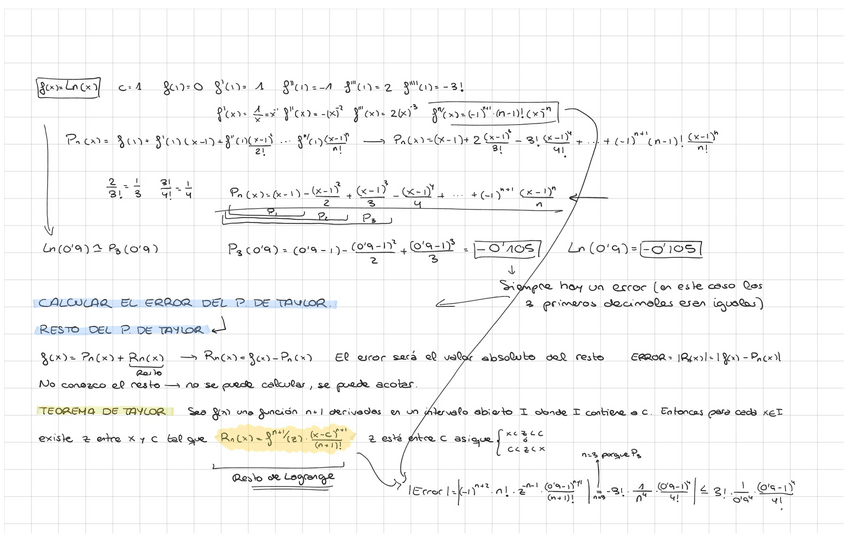 f(x)=Ln(x) c=1 f(1)=0 f'(1)= 1 f''(1)=-1 f'''(1)= 2 f''''(1)=-3!
f'(x)= 1/x =x⁻¹ f''(x)=-(x)⁻² f'''(x)= 2(x)⁻³ fⁿ⁾(x)=(-1)ⁿ⁺¹·(n-1)!(x)⁻ⁿ
Pn(x)= f(1)+ f'(1)(x-1)+f''(1)(x-1)²/2! ... fⁿ⁾(1)(x-1)ⁿ/n! → Pn(x)=(x-1)+2(x-1)³/3! - 3!(x-1)⁴/4! + ... +(-1)ⁿ⁺¹(n-1)! (x-1)ⁿ/n!
2/3! = 1/3 3!/4! = 1/4 Pn(x)=(x-1)-(x-1)²/2 + (x-1)³/3 - (x-1)⁴/4 + ... +(-1)ⁿ⁺¹ (x-1)ⁿ/n
P₁ P₂ P₃
Ln(0'9) ≃ P₃(0'9) P₃(0'9)=(0'9-1)-(0'9-1)²/2 + (0'9-1)³/3 = -0'105 Ln(0'9)= -0'105
Siempre hay un error (en este caso los
3 primeros decimales eran iguales)
CALCULAR EL ERROR DEL P. DE TAYLOR.
RESTO DEL P. DE TAYLOR
f(x)= Pn(x)+ Rn(x) → Rn(x)=f(x)-Pn(x) El error será el valor absoluto del resto ERROR=|Rn(x)|=|f(x)-Pn(x)|
Resto
No conozco el resto → no se puede calcular, se puede acotar.
TEOREMA DE TAYLOR Sea f(x) una función n+1 derivadas en un intervalo abierto I donde I contiene a c. Entonces para cada x∈I
existe z entre x y c tal que Rn(x)= fⁿ⁺¹⁾(z)·(x-c)ⁿ⁺¹/(n+1)! z está entre c asi que { x<z<c
o
c<z<x
n=3 porque P₃
Resto de Lagrange
|Error|=|(-1)ⁿ⁺²·n!·z⁻ⁿ⁻¹·(0'9-1)ⁿ⁺¹/(n+1)!| = n=3 |-3!·1/n⁴·(0'9-1)⁴/4!| ≤ 3!·1/0'9⁴·(0'9-1)⁴/4!